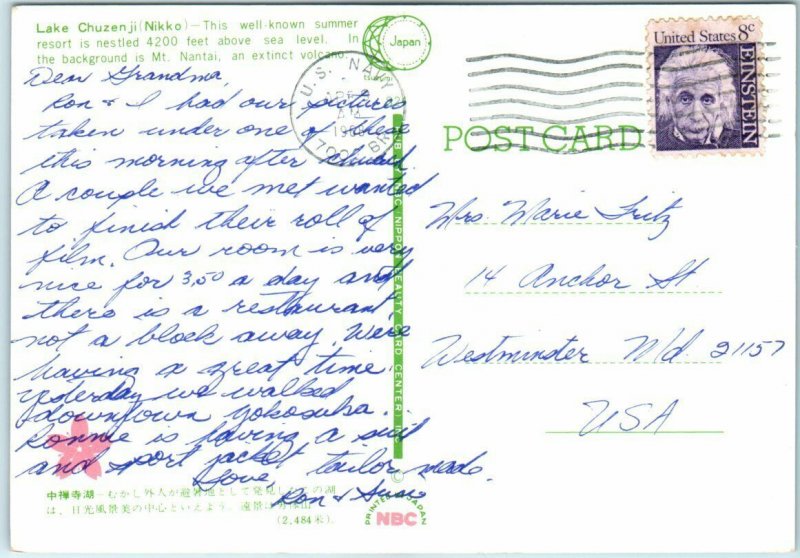 Lake Chuzenji (Nikko) — This well-known summer
resort is nestled 4200 feet above sea level. In
the background is Mt. Nantai, an extinct volcano.
Japan
United States 8c
EINSTEIN
U.S. NAVY
POST CARD
Dear Grandma,
Ron & I had our pictures
taken under one of these
this morning after church.
A couple we met wanted
to finish their roll of
film. Our room is very
nice for 3.50 a day and
there is a restaurant
not a block away. We're
having a great time.
Yesterday we walked
downtown Yokosuka.
Ronnie is having a suit
and sport jacket tailor made.
Love,
Ron & Susie
Mrs. Marie Fritz
14 Anchor St
Westminster Md. 21157
USA
NBC NIPPON BEAUTY CARD CENTER
中禅寺湖—むかし外人が避暑地として発見したこの湖
は、日光風景美の中心といえよう。遠景は男体山
(2,484米)。
©
PRINTED IN JAPAN
NBC